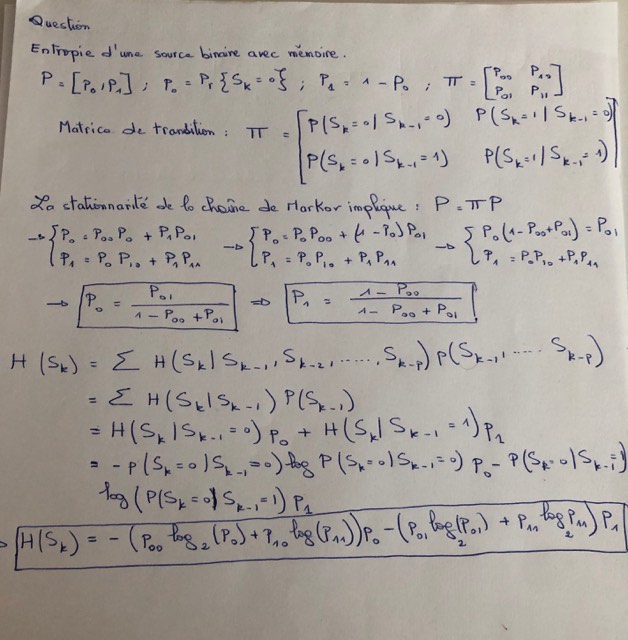 Question
Entropie d'une source binaire avec mémoire.
P = [P₀, P₁] ; P₀ = Pr {Sₖ = 0} ; P₁ = 1 - P₀ ; Π = [P₀₀ P₁₀
P₀₁ P₁₁]
Matrice de transition : Π = [P(Sₖ=0 | Sₖ₋₁=0) P(Sₖ=1 | Sₖ₋₁=0)
P(Sₖ=0 | Sₖ₋₁=1) P(Sₖ=1 | Sₖ₋₁=1)]
La stationnarité de la chaîne de Markov implique : P = ΠP
→ {P₀ = P₀₀ P₀ + P₁ P₀₁ → {P₀ = P₀ P₀₀ + (1-P₀) P₀₁ → {P₀(1-P₀₀+P₀₁) = P₀₁
P₁ = P₀ P₁₀ + P₁ P₁₁ P₁ = P₀ P₁₀ + P₁ P₁₁ P₁ = P₀ P₁₀ + P₁ P₁₁
→ P₀ = P₀₁ / (1 - P₀₀ + P₀₁) ⇒ P₁ = (1 - P₀₀) / (1 - P₀₀ + P₀₁)
H(Sₖ) = Σ H(Sₖ | Sₖ₋₁, Sₖ₋₂, ....., Sₖ₋ₚ) p(Sₖ₋₁, .... Sₖ₋ₚ)
= Σ H(Sₖ | Sₖ₋₁) P(Sₖ₋₁)
= H(Sₖ | Sₖ₋₁ = 0) P₀ + H(Sₖ | Sₖ₋₁ = 1) P₁
= - P(Sₖ=0 | Sₖ₋₁=0) log P(Sₖ=0 | Sₖ₋₁=0) P₀ - P(Sₖ=0 | Sₖ₋₁=1)
log (P(Sₖ=0 | Sₖ₋₁=1) P₁
H(Sₖ) = - (P₀₀ log₂(P₀) + P₁₀ log(P₁₁)) P₀ - (P₀₁ log₂(P₀₁) + P₁₁ log₂ P₁₁) P₁